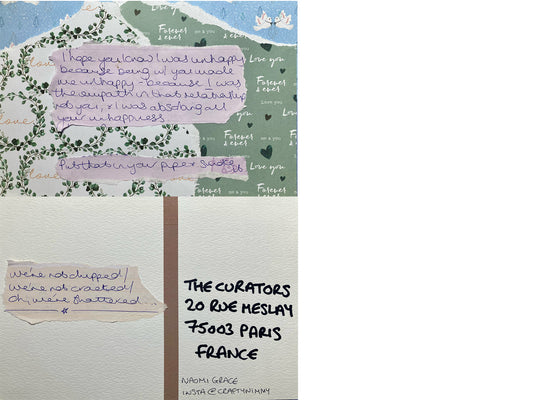 I hope you know I was unhappy
because being w/ you made
me unhappy - because I was
the empath in that relationship
not you, & I was absorbing all
your unhappiness.
Put that in your pipe & smoke it
love
Forever
& ever
me & you
Love you
Forever
& ever
Love you
Forever
& ever
me & you
We're not chipped/
We're not cracked/
Oh, we're shattered...
THE CURATORS
20 RUE MESLAY
75003 PARIS
FRANCE
NAOMI GRACE
INSTA @CRAFTYNIMNY